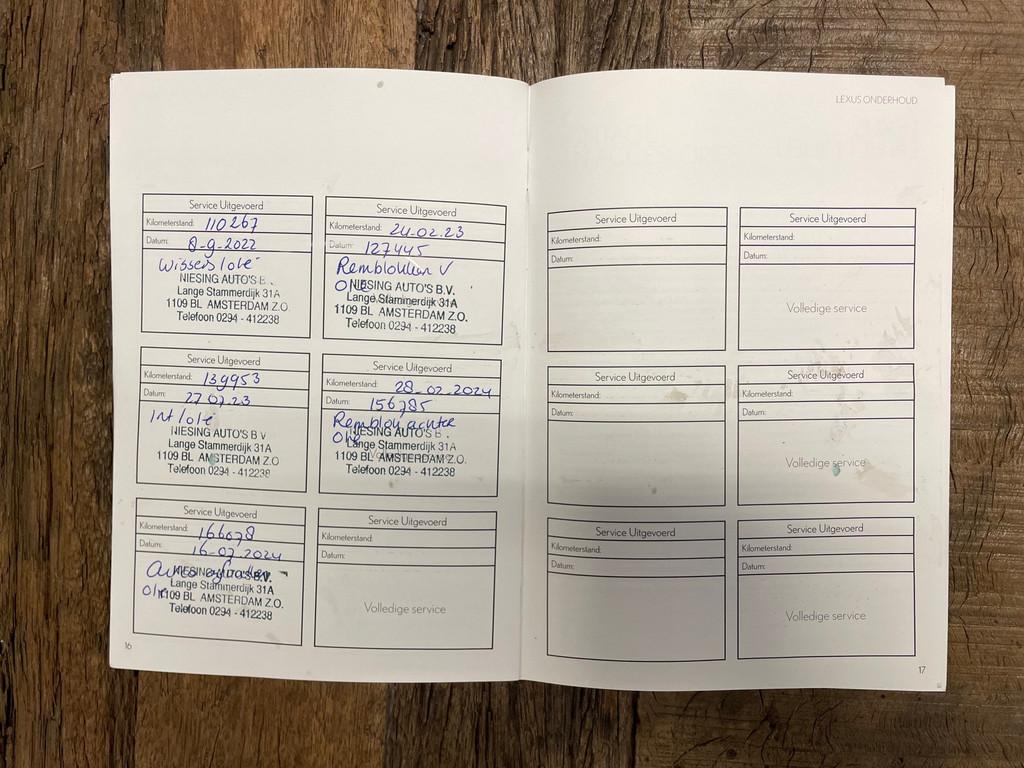 LEXUS ONDERHOUD
Service Uitgevoerd
Kilometerstand: 110267
Datum: 8-9-2022
Wissers/olie
NIESING AUTO'S B.
Lange Stammerdijk 31A
1109 BL AMSTERDAM Z.O.
Telefoon 0294 - 412238
Service Uitgevoerd
Kilometerstand: 24-02.23
Datum: 127445
Remblokken V
Olie
NIESING AUTO'S B.V.
Lange Stammerdijk 31A
1109 BL AMSTERDAM Z.O.
Telefoon 0294 - 412238
Service Uitgevoerd
Kilometerstand: 139953
Datum: 27 07.23
Int/olie
NIESING AUTO'S B V
Lange Stammerdijk 31A
1109 BL AMSTERDAM Z.O
Telefoon 0294 - 412238
Service Uitgevoerd
Kilometerstand: 28-02-2024
Datum: 156785
Remblok achter
Olie
NIESING AUTO'S B.
Lange Stammerdijk 31A
1109 BL AMSTERDAM Z.O.
Telefoon 0294 - 412238
Service Uitgevoerd
Kilometerstand: 166078
Datum: 16-07-2024
NIESING AUTO'S B.V.
Lange Stammerdijk 31A
Olie
1109 BL AMSTERDAM Z.O.
Telefoon 0294 - 412238
Service Uitgevoerd
Kilometerstand:
Datum:
Volledige service
16
Service Uitgevoerd
Kilometerstand:
Datum:
Service Uitgevoerd
Kilometerstand:
Datum:
Volledige service
Service Uitgevoerd
Kilometerstand:
Datum:
Service Uitgevoerd
Kilometerstand:
Datum:
Volledige service
Service Uitgevoerd
Kilometerstand:
Datum:
Service Uitgevoerd
Kilometerstand:
Datum:
Volledige service
17